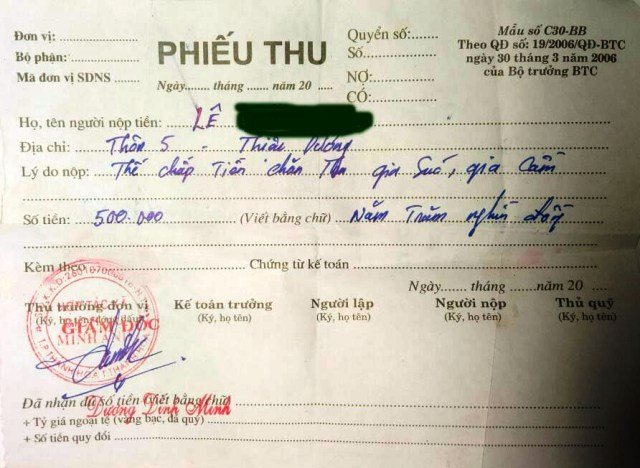 Đơn vị:
Bộ phận:
Mã đơn vị SDNS
PHIẾU THU
Ngày........ tháng ........ năm 20 ......
Quyển số:
Số
NỢ:
CÓ:
Mẫu số C30-BB
Theo QĐ số: 19/2006/QĐ-BTC
ngày 30 tháng 3 năm 2006
của Bộ trưởng BTC
Họ, tên người nộp tiền: LÊ
Địa chỉ: Thôn 5 - Thiệu Dương
Lý do nộp: Thế chấp Tiền chăn Thả gia Suc, gia Cầm
Số tiền: 500.000 (Viết bằng chữ) Năm Trăm nghìn đồng
Kèm theo Chứng từ kế toán
Ngày........ tháng ........ năm 20 ......
Thủ trưởng đơn vị Kế toán trưởng Người lập Người nộp Thủ quỹ
(Ký, họ tên, đóng dấu) (Ký, họ tên) (Ký, họ tên) (Ký, họ tên) (Ký, họ tên)
GIÁM ĐỐC
MINH ANH
Dương Đình Minh
Đã nhận đủ số tiền Viết bằng chữ)
+ Tỷ giá ngoại tệ (vàng bạc, đá quý)
+ Số tiền quy đổi